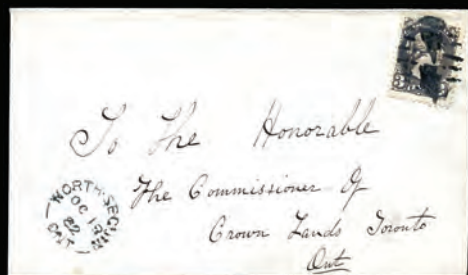 To The Honorable
The Commissioner of
Crown Lands Toronto
Ont
OC 19
82
ONT